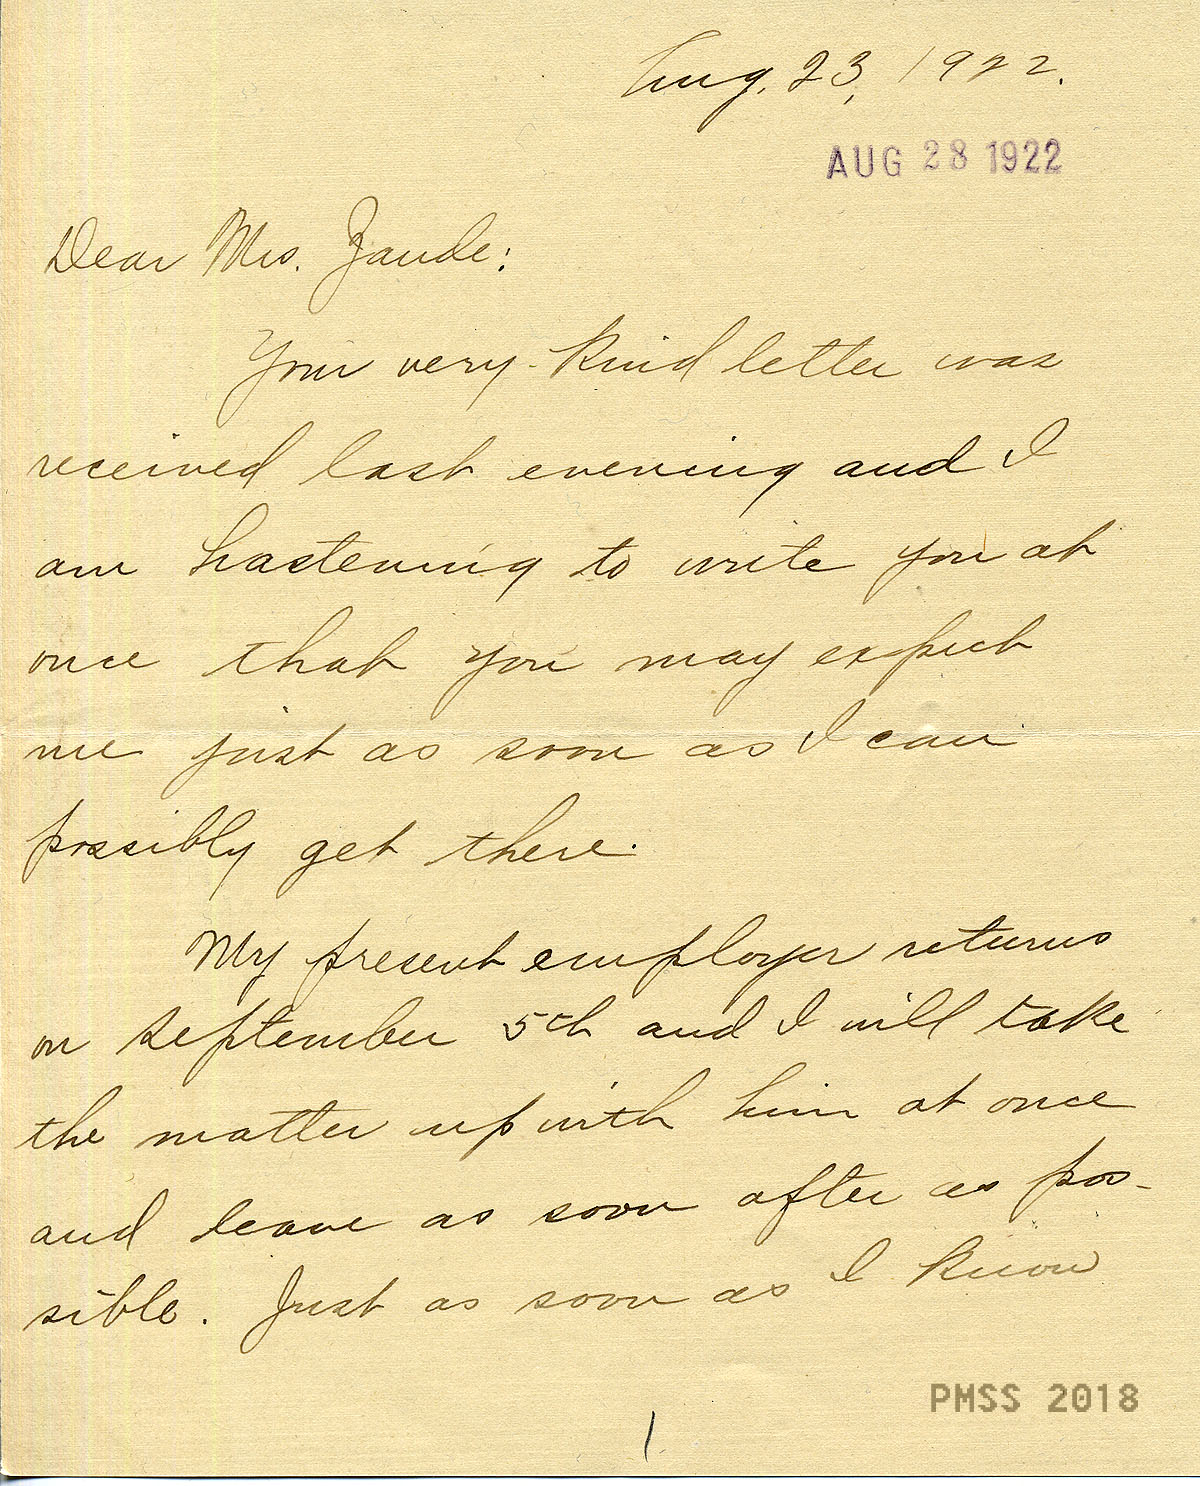 Aug. 23, 1922.
AUG 28 1922
Dear Mrs. Zande:
Your very kind letter was
received last evening and I
am hastening to write you at
once that you may expect
me just as soon as I can
possibly get there.
My present employer returns
on September 5th and I will take
the matter up with him at once
and leave as soon after as pos-
sible. Just as soon as I know
PMSS 2018
1